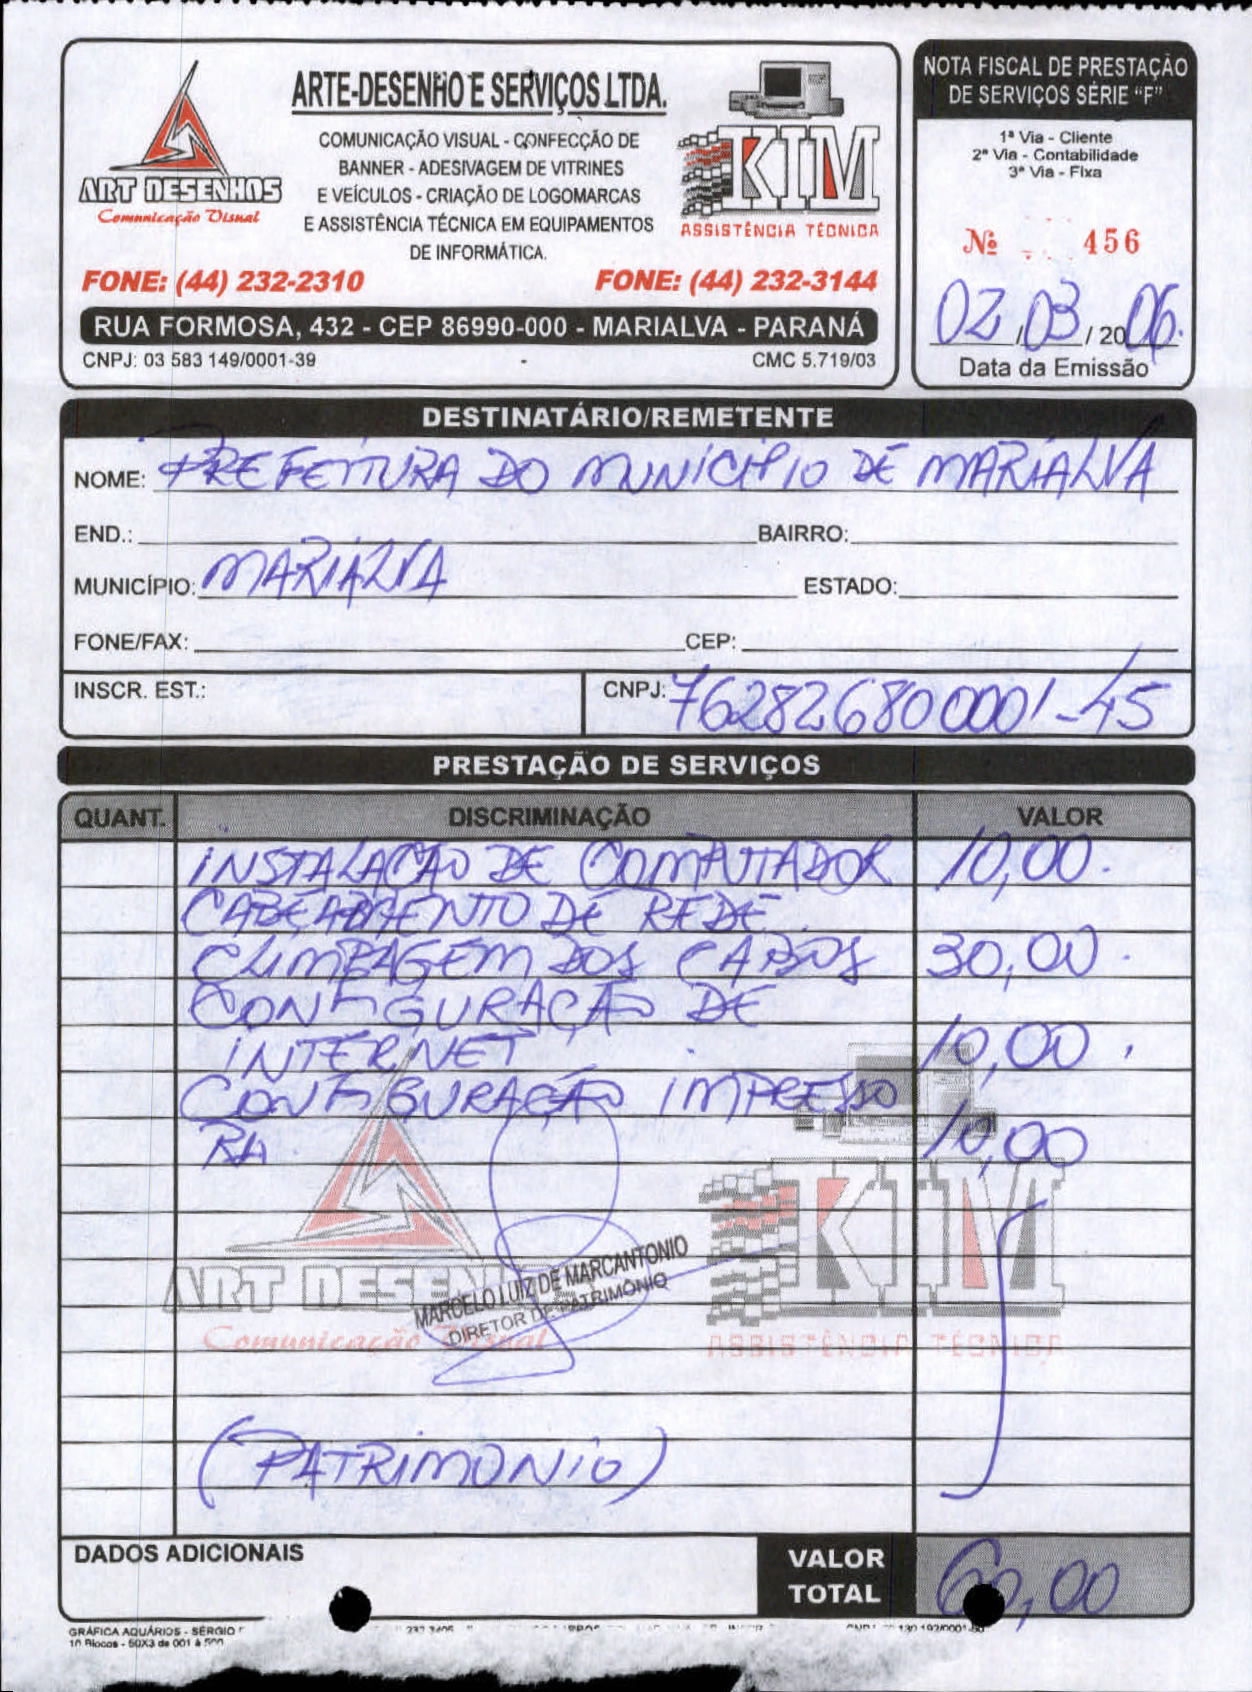 ARTE-DESENHO E SERVIÇOS LTDA.
COMUNICAÇÃO VISUAL - CONFECÇÃO DE
BANNER - ADESIVAGEM DE VITRINES
E VEÍCULOS - CRIAÇÃO DE LOGOMARCAS
E ASSISTÊNCIA TÉCNICA EM EQUIPAMENTOS
DE INFORMÁTICA.
ART DESENHOS
Comunicação Visual
KIM
ASSISTÊNCIA TÉCNICA
FONE: (44) 232-2310 FONE: (44) 232-3144
RUA FORMOSA, 432 - CEP 86990-000 - MARIALVA - PARANÁ
CNPJ: 03 583 149/0001-39 CMC 5.719/03
NOTA FISCAL DE PRESTAÇÃO
DE SERVIÇOS SÉRIE "F"
1ª Via - Cliente
2ª Via - Contabilidade
3ª Via - Fixa
Nº 456
02/03/2006.
Data da Emissão
DESTINATÁRIO/REMETENTE
NOME: PREFEITURA DO MUNICÍPIO DE MARIALVA
END.: BAIRRO:
MUNICÍPIO: MARIALVA ESTADO:
FONE/FAX: CEP:
INSCR. EST.: CNPJ: 762826800001-45
PRESTAÇÃO DE SERVIÇOS
QUANT. DISCRIMINAÇÃO VALOR
INSTALAÇÃO DE COMPUTADOR 10,00.
CABEAMENTO DE REDE
CLIMPAGEM DOS CABOS 30,00.
CONFIGURAÇÃO DE
INTERNET 10,00.
CONFIGURAÇÃO IMPRESSO
RA. 10,00
ART DESENHOS
Comunicação Visual
KIM
ASSISTÊNCIA TÉCNICA
MARCELO LUIZ DE MARCANTONIO
DIRETOR DE PATRIMÔNIO
(PATRIMONIO)
DADOS ADICIONAIS
VALOR
TOTAL 60,00
GRÁFICA AQUÁRIOS - SÉRGIO
10 Blocos - 50X3 de 001 à 500